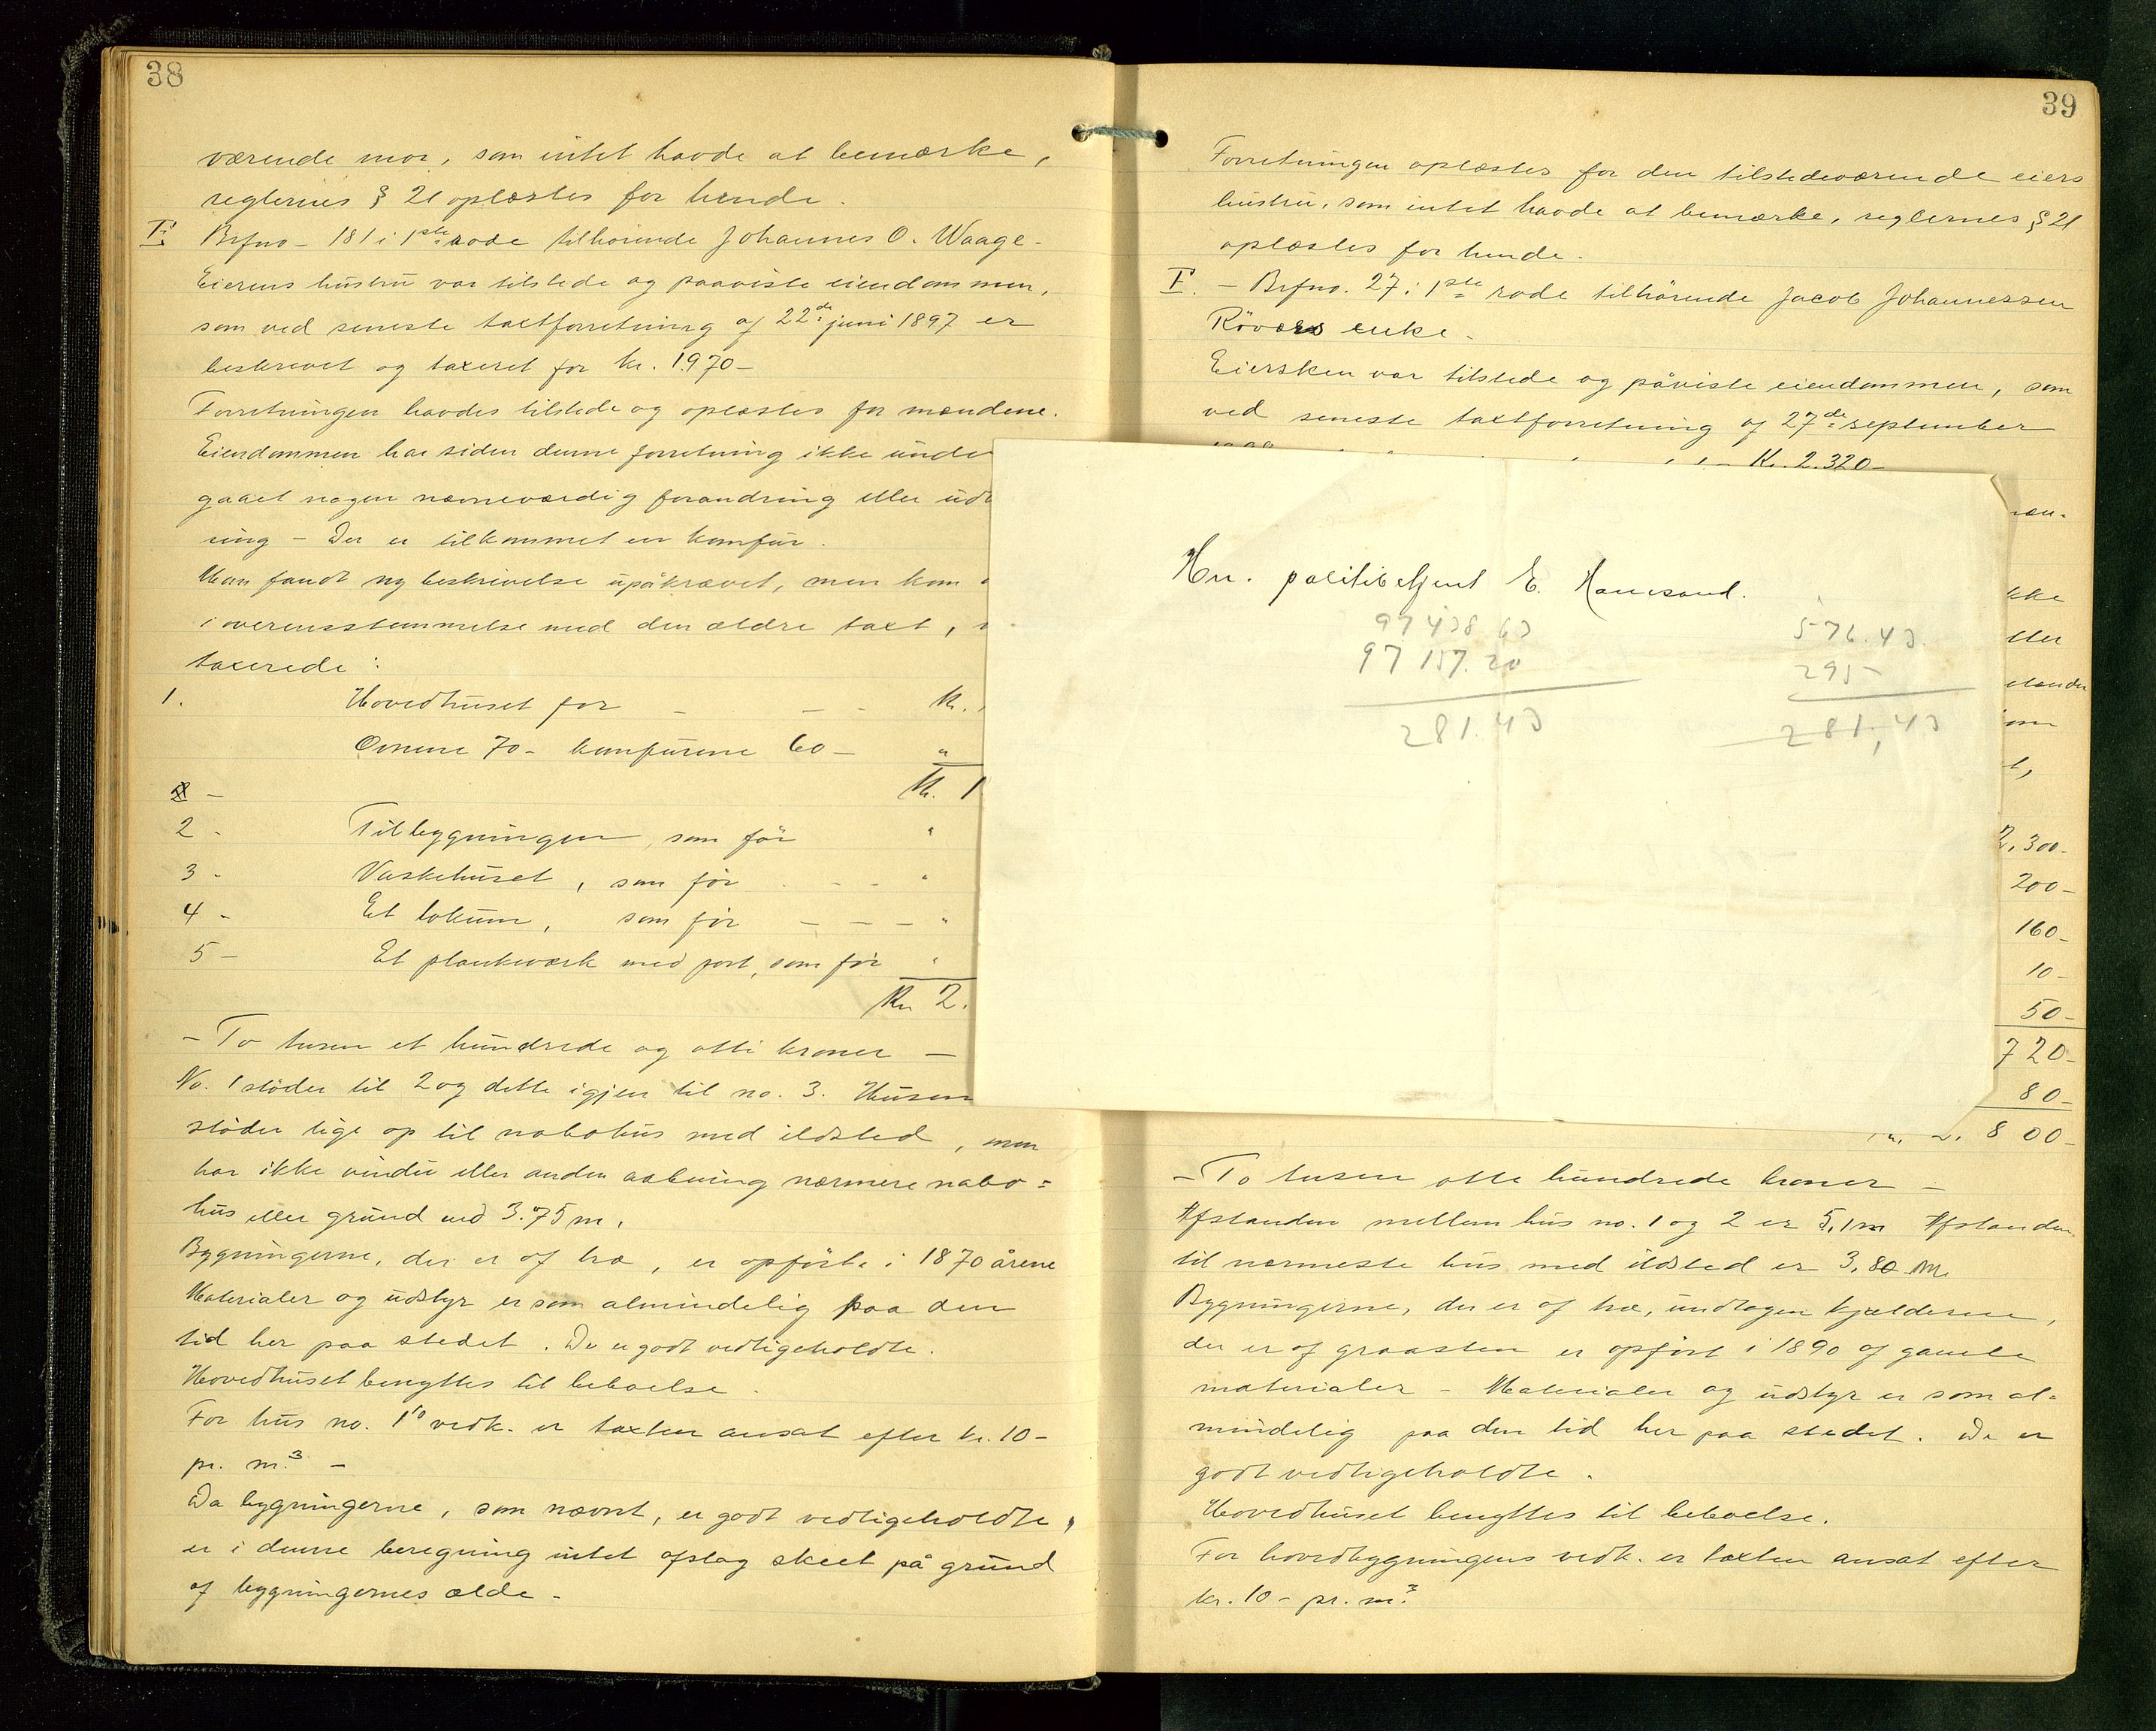 38
værende mor, som intet havde at bemærke,
reglernes § 21 oplæstes for hende.
E. Brfno - 181 i 1ste rode tilhørende Johannes O. Waage -
Eierens hustru var tilstede og paaviste eiendommen,
som ved seneste taxtforretning af 22de juni 1897 er
beskrevet og taxeret for kr. 1970 -
Forretningen havdes tilstede og oplæstes for mændene.
Eiendommen har siden denne forretning ikke unde
gaaet nogen nævneværdig forandring eller
ring - Der er tilkommet en komfur.
Man fandt ny beskrivelse upåkrævet, men kom
i overensstemmelse med den ældre taxt,
taxerede:
1. Hovedhuset for - - - kr.
Ovnene 70 - komfurene 60 - "
Kr. 1
2 - Tilbygningen, som før "
3 - Vaskehuset, som før - - - "
4 - Et lokum, som før - - - "
5 - Et plankeværk med port, som før "
Kr 2.
- To tusen et hundrede og otti kroner -
No. 1 støder til 2 og dette igjen til no. 3. Husene
støder lige op til nabohus med ildsted, men
har ikke vindu eller anden aabning nærmere nabo=
hus eller grund end 3.75 m.
Bygningerne, der er af træ, er opførte i 1870 årene
Materialer og udstyr er som almindelig paa den
tid her paa stedet. De er godt vedligeholdte.
Hovedhuset benyttes til beboelse.
For hus no. 1's vedk. er taxten ansat efter kr. 10 -
pr. m.3 -
Da bygningerne, som nævnt, er godt vedligeholdte,
er i denne beregning intet afslag skeet på grund
af bygningernes ælde -
39
Forretningen oplæstes for den tilstedeværende eiers
hustru, som intet havde at bemærke, reglernes § 21
oplæstes for hende.
F. - Brfno. 27 i 1ste rode tilhørende Jacob Johannessen
Røværs enke.
Eiersken var tilstede og påviste eiendommen, som
ved seneste taxtforretning af 27de september
Kr. 2.320 -
Hr. politibetjent E.
97 438 63
97 157.20
281.43
576.43.
295 -
281,43
ikke
eller
2.300 -
200 -
160 -
10 -
50 -
720 -
80 -
800 -
- To tusen otte hundrede kroner -
Afstanden mellem hus no. 1 og 2 er 5,1 m Afstanden
til nærmeste hus med ildsted er 3.80 m.
Bygningerne, der er af træ, undtagen kjælderne,
der er af graasten er opført i 1890 af gamle
materialer - Materialer og udstyr er som al=
mindelig paa den tid her paa stedet. De er
godt vedligeholdte.
Hovedhuset benyttes til beboelse.
For hovedbygningens vedk. er taxten ansat efter
kr. 10 - pr. m.3